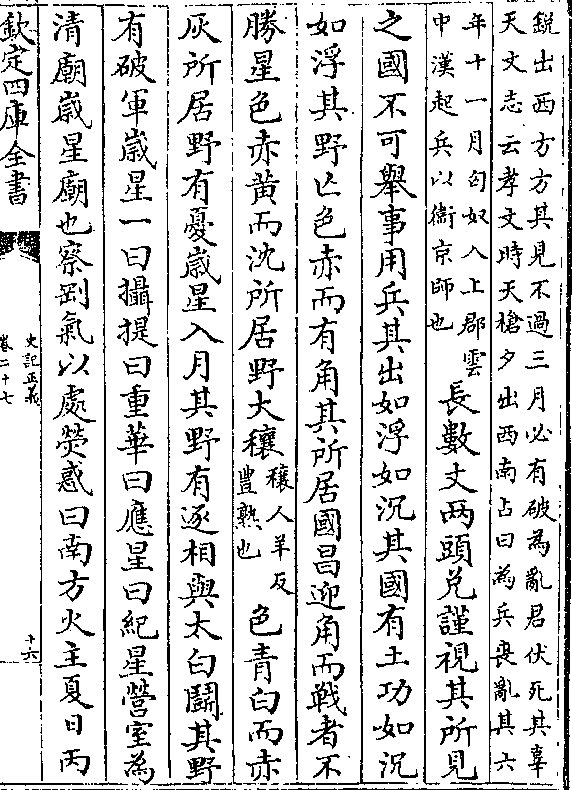 鋭出西方方其見不過三月必有破為亂君伏死其辜
天文志云孝文時天槍夕出西南占曰為兵喪亂其六
年十一月匈奴入上郡雲
中漢起兵以衞京師也
長數丈兩頭兌謹視其所見
之國不可舉事用兵其出如浮如沉其國有土功如沉
如浮其野亡色赤而有角其所居國昌迎角而戰者不
勝星色赤黄而沈所居野大穰
穰人羊反
豐熟也
色青白而赤
灰所居野有憂歲星入月其野有逐相與太白鬭其野
有破軍歲星一曰攝提曰重華曰應星曰紀星營室為
清廟歲星廟也察剛氣以處熒惑曰南方火主夏日丙
欽定四庫全書
史記正義
卷二十七
十六